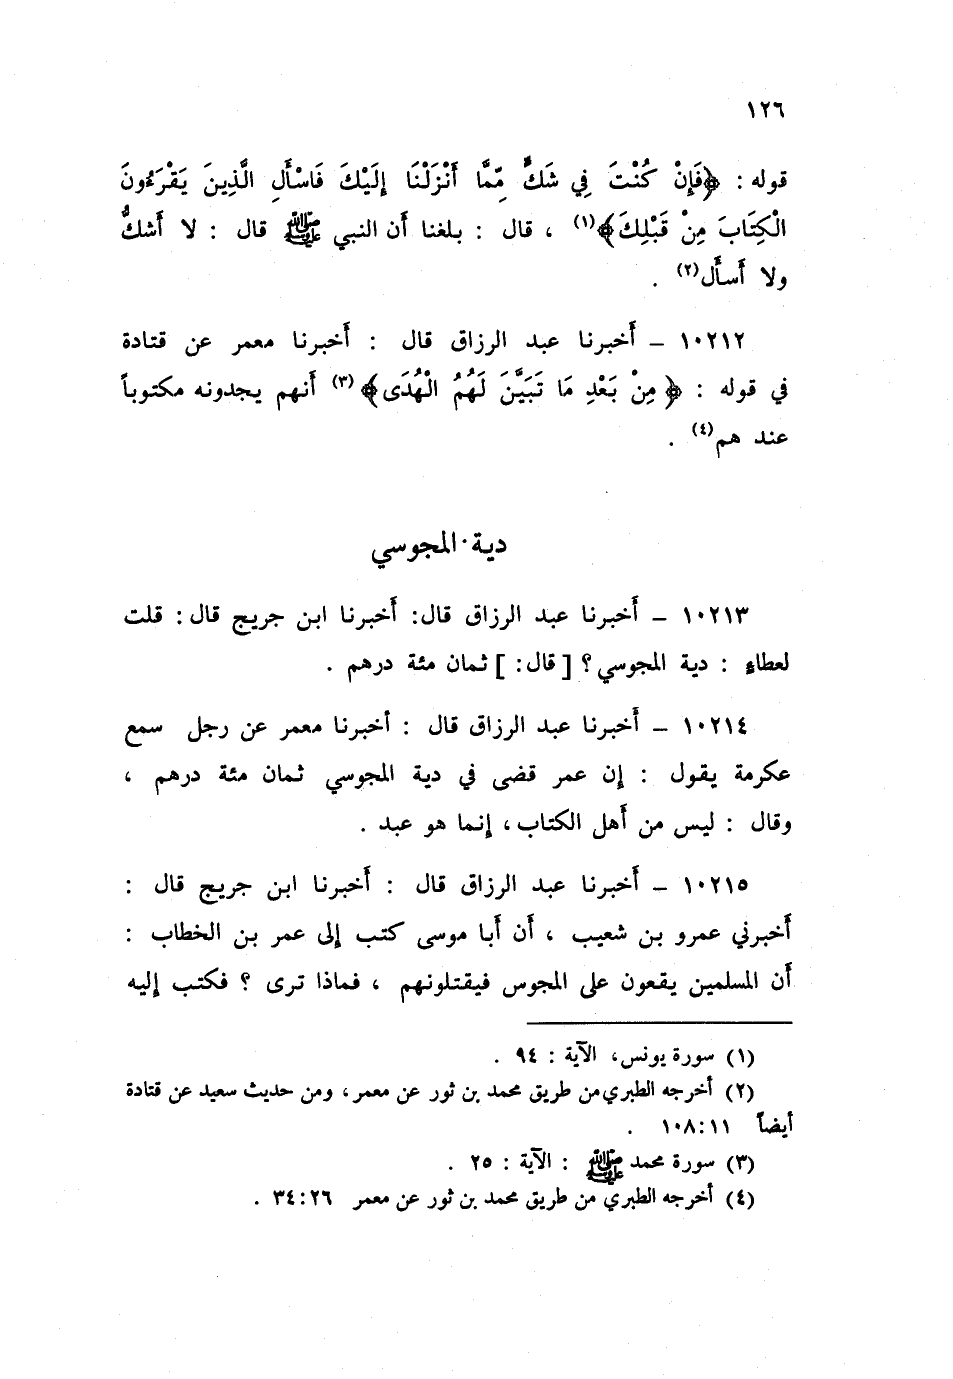 ١٢٦
قوله : ﴿فَإِنْ كُنْتَ فِي شَكٍّ مِّمَّا أَنْزَلْنَا إِلَيْكَ فَاسْأَلِ الَّذِينَ يَقْرَءُونَ
الْكِتَابَ مِنْ قَبْلِكَ﴾(١) ، قال : بلغنا أن النبي ﷺ قال : لا أشكُّ
ولا أسأل(٢) .
١٠٢١٢ – أخبرنا عبد الرزاق قال : أخبرنا معمر عن قتادة
في قوله : ﴿مِنْ بَعْدِ مَا تَبَيَّنَ لَهُمُ الْهُدَى﴾(٣) أنهم يجدونه مكتوباً
عند هم(٤) .
دية المجوسي
١٠٢١٣ – أخبرنا عبد الرزاق قال: أخبرنا ابن جريج قال : قلت
لعطاء : دية المجوسي ؟ [ قال : ] ثمان مئة درهم .
١٠٢١٤ – أخبرنا عبد الرزاق قال : أخبرنا معمر عن رجل سمع
عكرمة يقول : إن عمر قضى في دية المجوسي ثمان مئة درهم ،
وقال : ليس من أهل الكتاب ، إنما هو عبد .
١٠٢١٥ – أخبرنا عبد الرزاق قال : أخبرنا ابن جريج قال :
أخبرني عمرو بن شعيب ، أن أبا موسى كتب إلى عمر بن الخطاب :
أن المسلمين يقعون على المجوس فيقتلونهم ، فماذا ترى ؟ فكتب إليه
(١) سورة يونس، الآية : ٩٤ .
(٢) أخرجه الطبري من طريق محمد بن ثور عن معمر ، ومن حديث سعيد عن قتادة
أيضاً ١١:١٠٨ .
(٣) سورة محمد ﷺ : الآية : ٢٥ .
(٤) أخرجه الطبري من طريق محمد بن ثور عن معمر ٢٦:٣٤ .